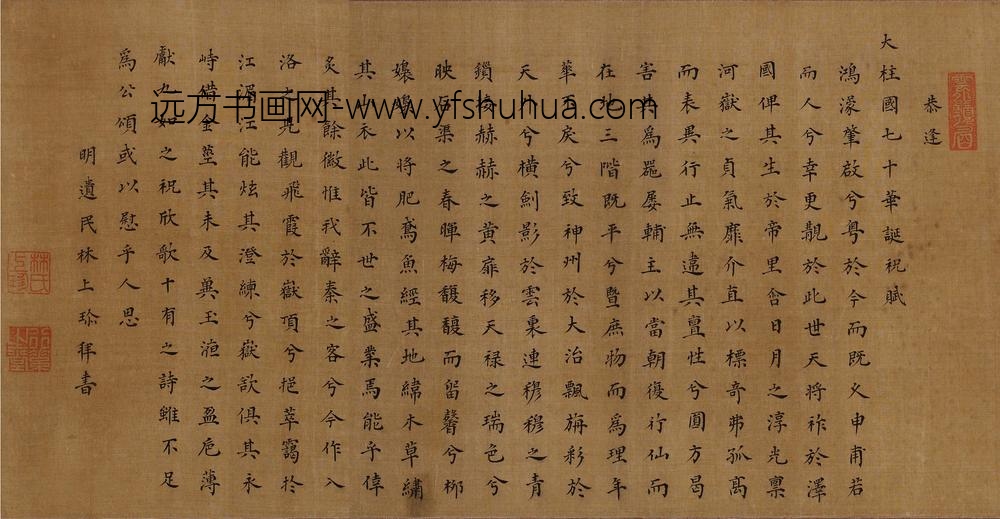 恭逢
大柱國七十華誕祝賦
鴻濛肇啟兮粵於今而既乂申甫若
而人兮幸更覯於此世天將祚於澤
國俾其生於帝里含日月之淳光稟
河嶽之貞氣靡介直以標奇弗孤高
而表異行止無違其亶性兮圓方曷
害其為器屢輔主以當朝復行仙而
在 三階既平兮暨庶物而為理年
華 戾兮致神州於大治飄旃彩於
天 兮橫劍影於雲東連穆穆之青
鎖 赫赫之黃扉移天祿之瑞色兮
映 渠之春暉梅馥馥而留馨兮柳
嬝嬝以將肥鳶魚經其地緯木草繡
其 衣此皆不世之盛業焉能乎倖
炙其餘徽惟我辭秦之客兮今作入
洛之 觀飛霞於嶽頂兮挹萃靄於
江湄江能炫其澄練兮嶽 俱其永
峙錯金莖其未及奠玉 之盈卮薄
獻九如之祝欣歌十有之詩雖不足
為公頌或以慰乎人思
明遺民林上珍拜書
远方书画网-www.yfshuhua.com